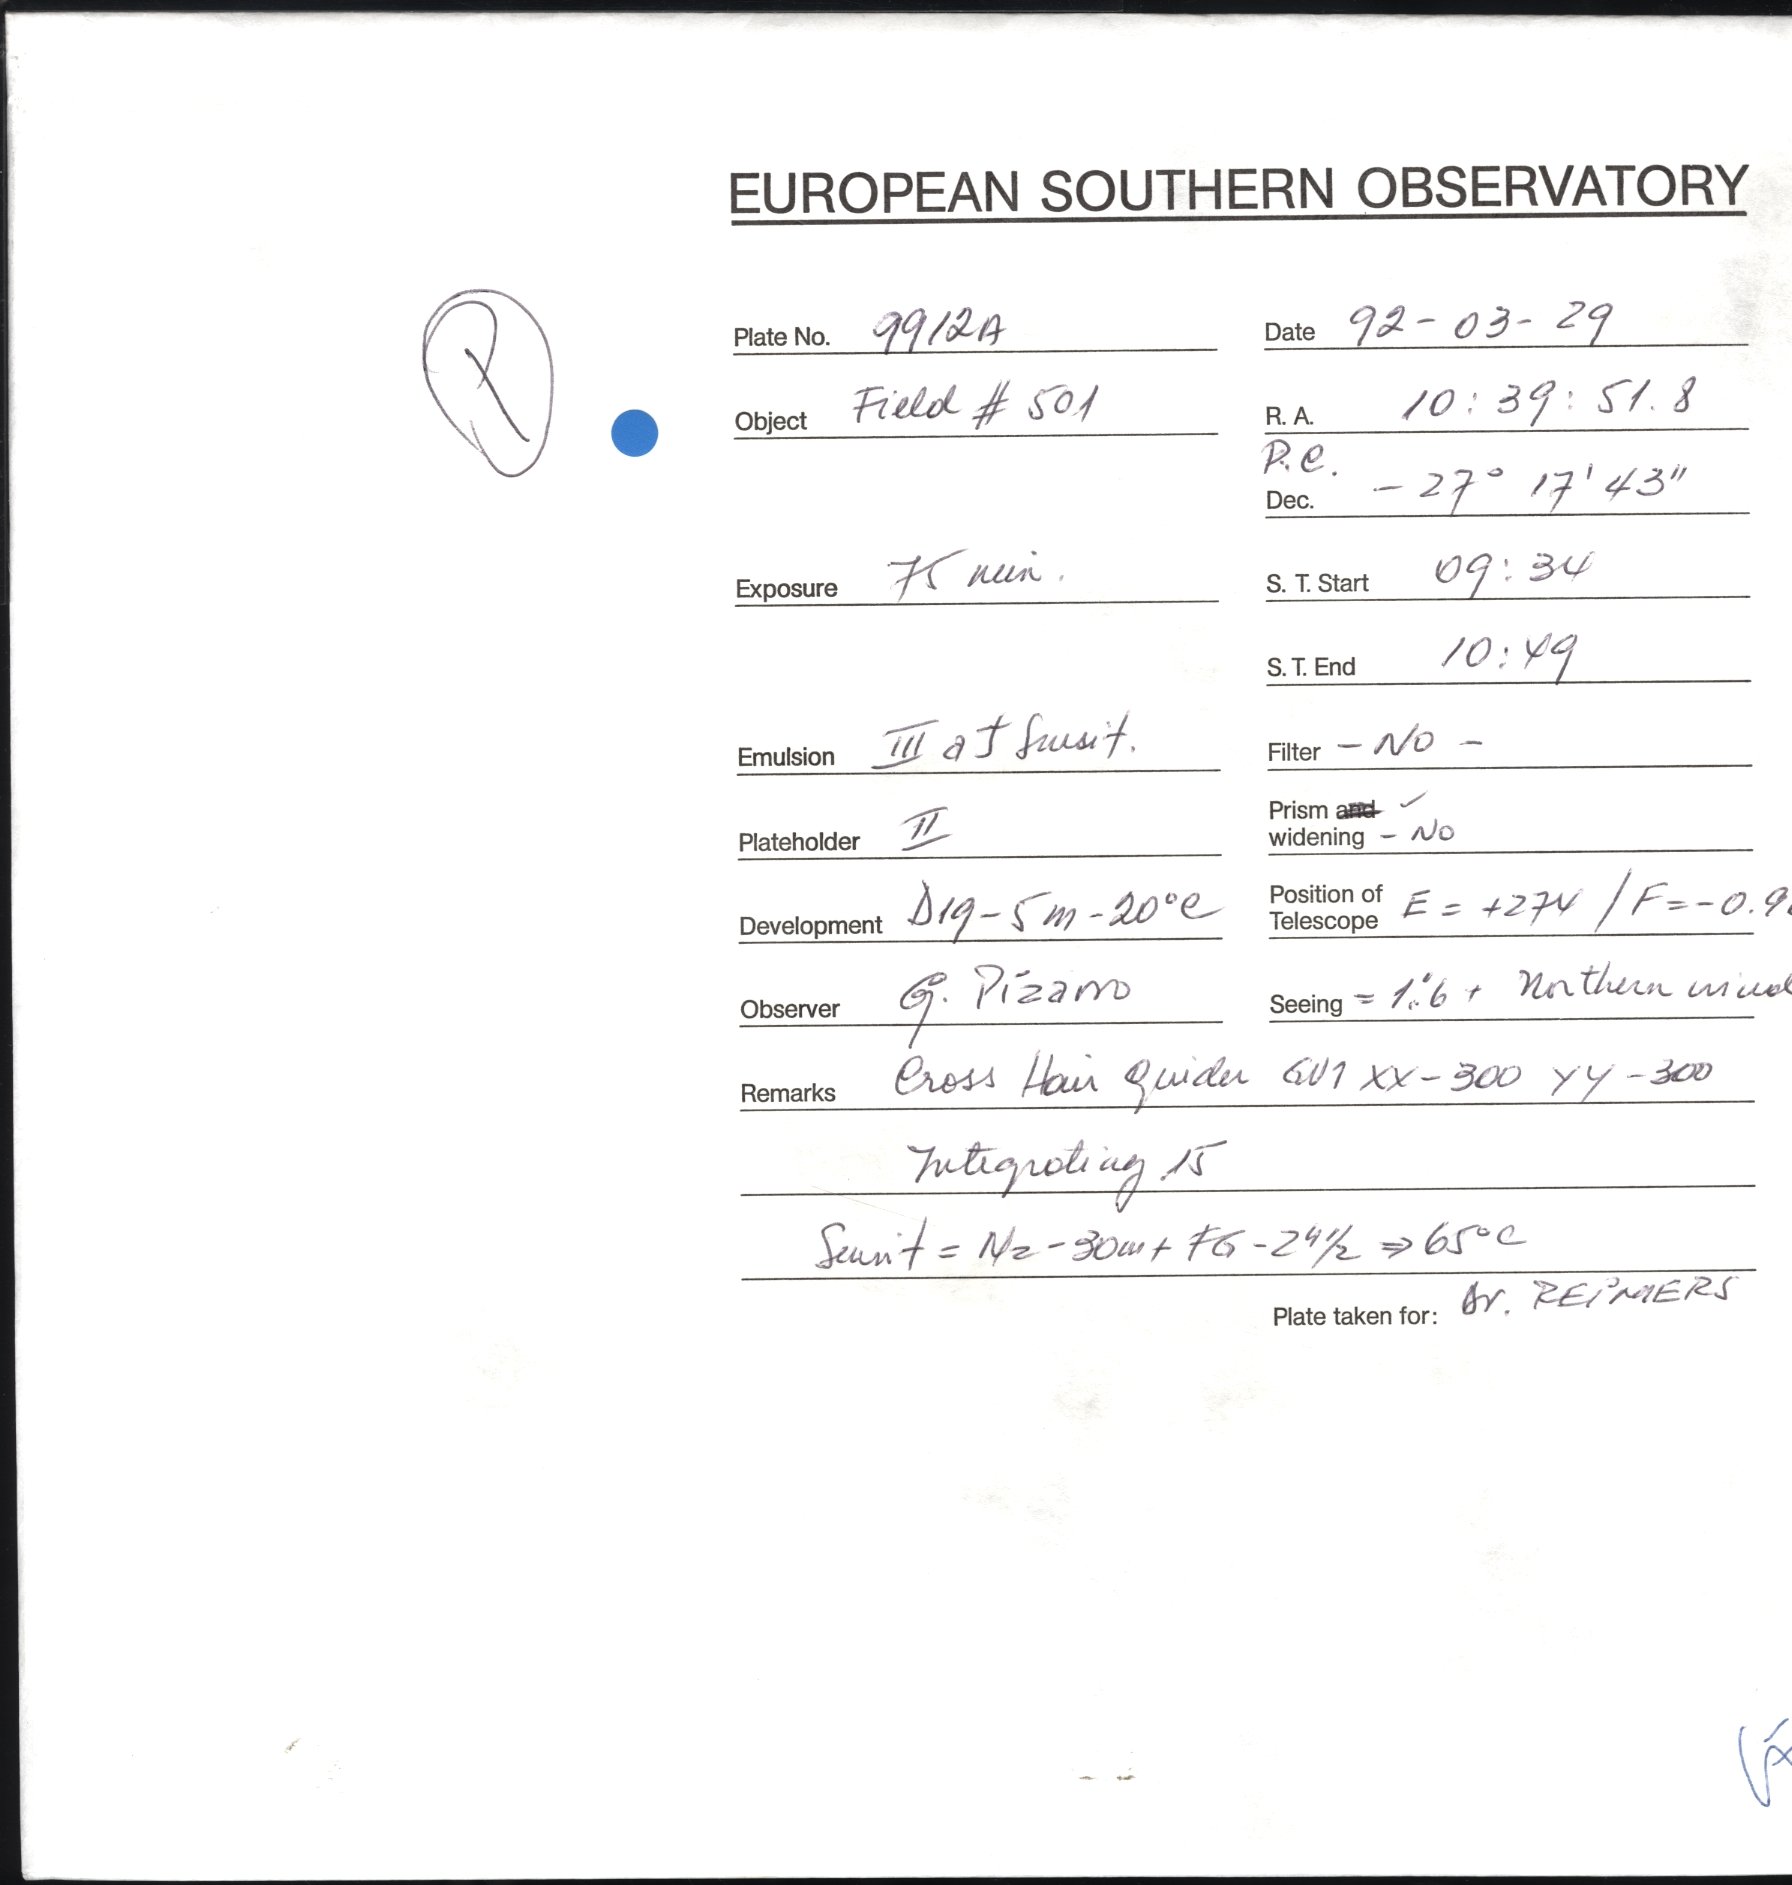 EUROPEAN SOUTHERN OBSERVATORY
P
Plate No. 9912A
Date 92-03-29
Object Field # 501
R. A. 10:39:51.8
P.C.
Dec. -27° 17' 43"
Exposure 75 min.
S. T. Start 09:34
S. T. End 10:49
Emulsion III a J Sensit.
Filter - NO -
Plateholder II
Prism and ✓
widening - NO
Development D19-5m-20°C
Position of
Telescope E = +274 / F=-0.9
Observer G. Pizarro
Seeing = 1."6 + Northern wind
Remarks Cross Hair guider GV1 XX-300 YY-300
Integrating 15
Sensit = N2-30m + FG-2H1/2 ⇒ 65°C
Plate taken for: Dr. REIMERS